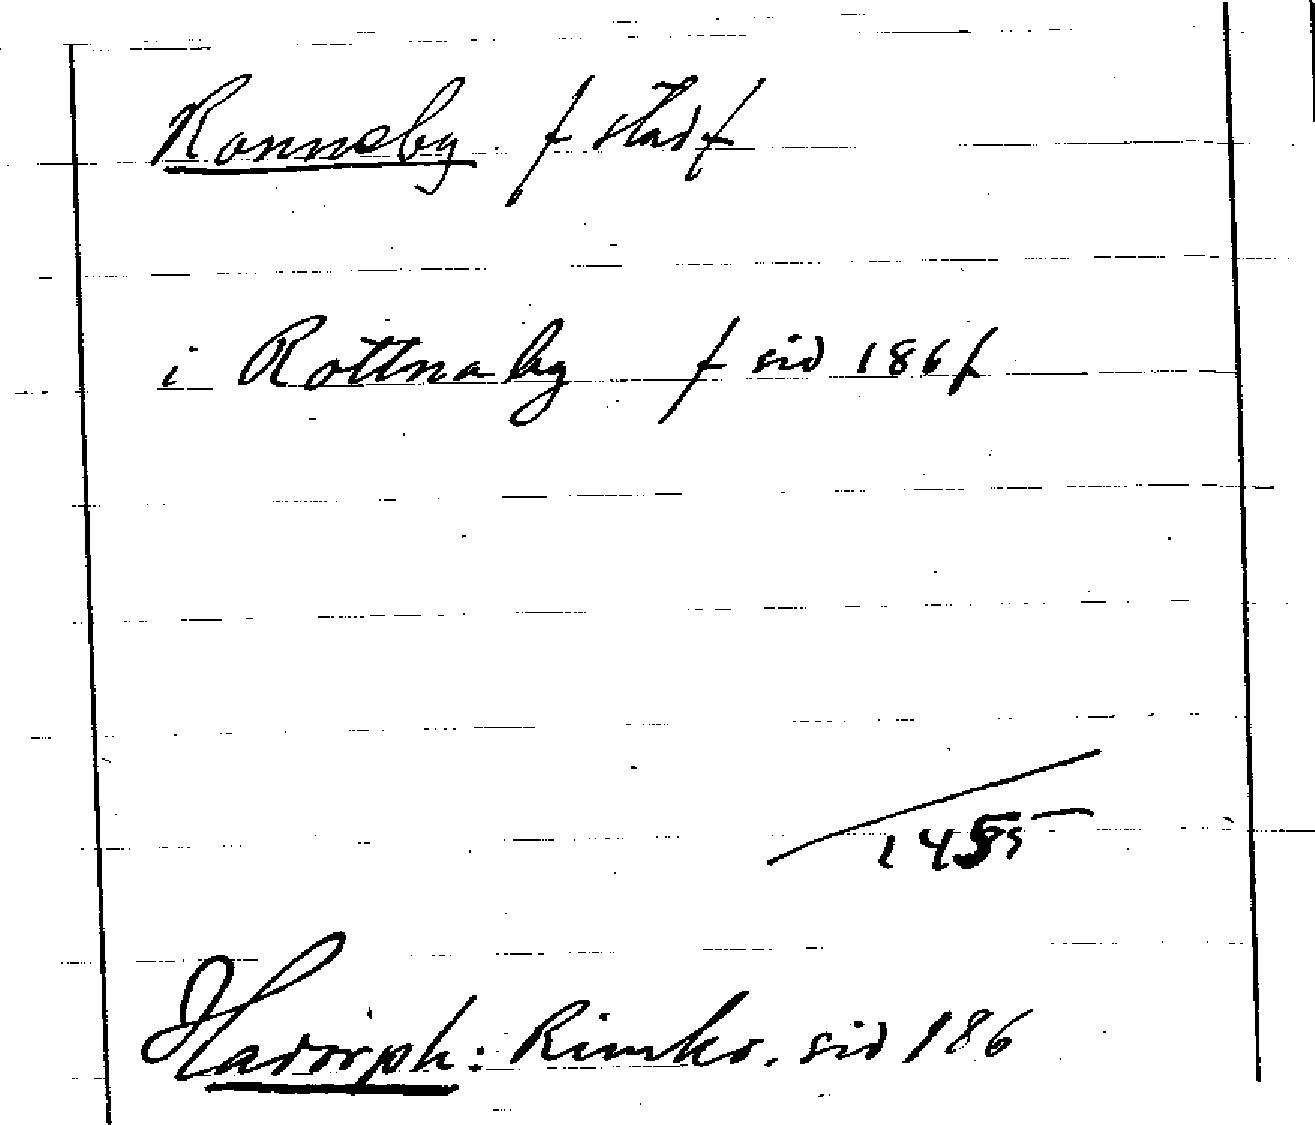 Ronneby f stad f
i Rottnaby f sid 186 f
1455
Hadorph: Rimkr. sid 186